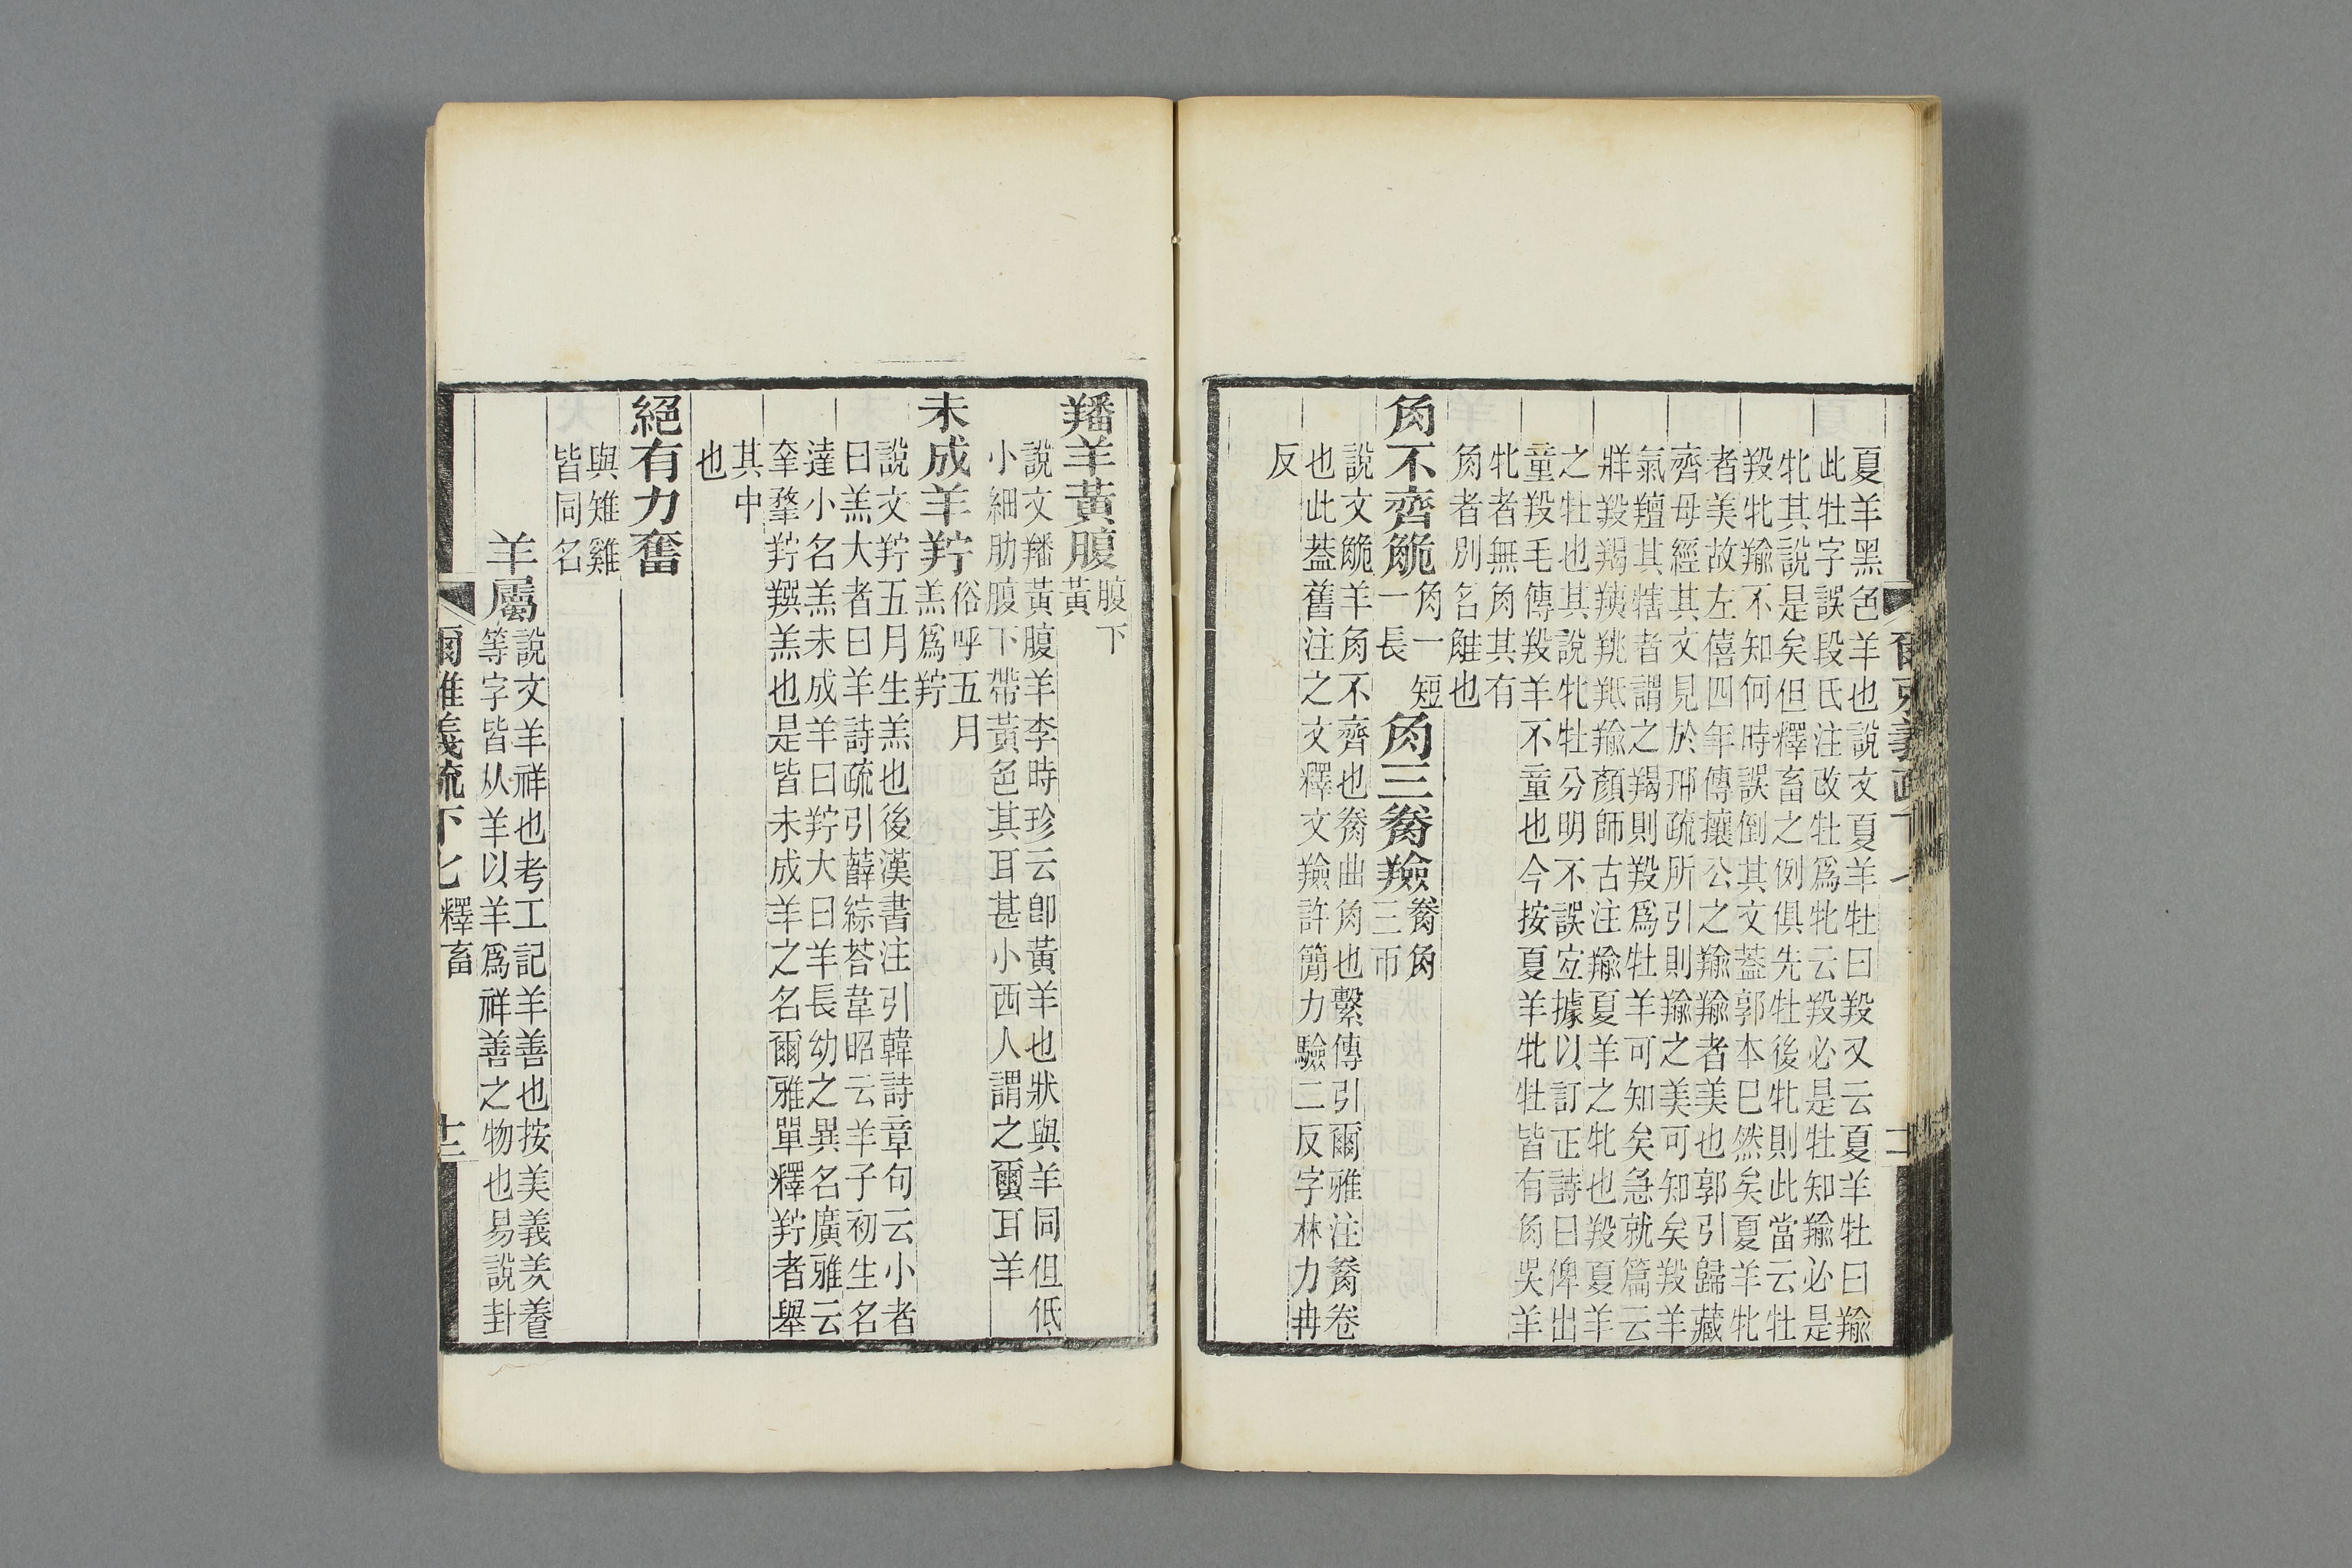 夏羊黑色羊也說文夏羊牡曰羖又云夏羊牡曰羭
此牡字誤段氏注改牡爲牝云羖必是牡知羭必是
牝其說是矣但釋畜之例俱先牡後牝則此當云牡
羖牝羭不知何時誤倒其文葢郭本巳然矣夏羊牝
者美故左僖四年傳攘公之羭羭者美也郭引歸藏
齊母經其文見於邢疏所引則羭之美可知矣羖羊
氣羶其犗者謂之羯則羖爲牡羊可知矣急就篇云
牂羖羯羠羜羝羭顏師古注羭夏羊之牝也羖夏羊
之牡也其說牝牡分明不誤宐據以訂正詩曰俾出
童羖毛傳羖羊不童也今按夏羊牝牡皆有角吳羊
牝者無角其有
角者別名觟也
角不齊觤角一短
一長
角三觠羷觠角
三帀
說文觤羊角不齊也觠曲角也繫傳引爾雅注觠卷
也此葢舊注之文釋文羷許簡力驗二反字林力冉
反
羳羊黃腹腹下
黃
說文羳黃腹羊李時珍云卽黃羊也狀與羊同但低
小細肋腹下帶黃色其耳甚小西人謂之蠒耳羊
未成羊羜俗呼五月
羔爲羜
說文羜五月生羔也後漢書注引韓詩章句云小者
曰羔大者曰羊詩疏引薛綜荅韋昭云羊子初生名
達小名羔未成羊曰羜大曰羊長幼之異名廣雅云
羍羜䍮羔也是皆未成羊之名爾雅單釋羜者舉
其中
也
絕有力奮
與雉雞
皆同名
羊屬說文羊祥也考工記羊善也按美義羑養
等字皆从羊以羊爲祥善之物也易說卦
爾雅義疏下七 釋畜 十二